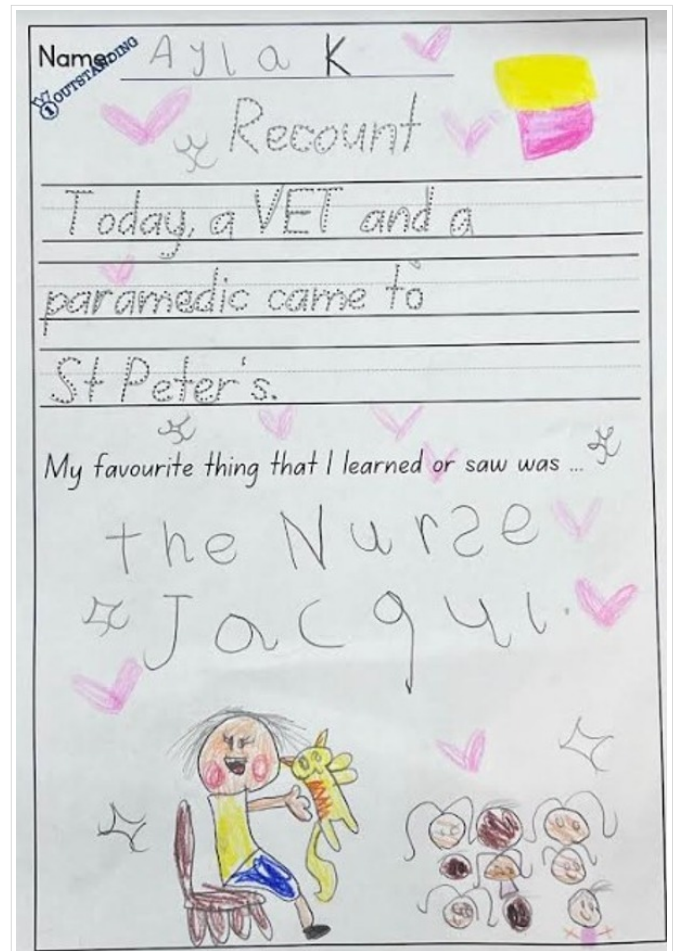 Name Ayla K
1 OUTSTANDING
Recount
Today, a VET and a
paramedic came to
St Peter's.
My favourite thing that I learned or saw was ...
the Nurse
Jacqui.